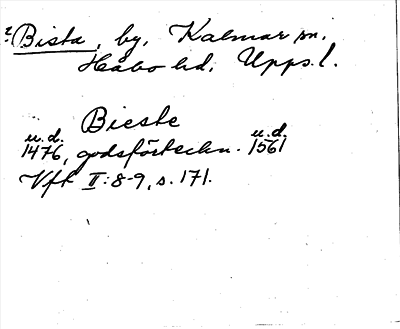 ? Bista, by, Kalmar sn.
Håbo hd. Upps. l.
Bieste
u.d. u.d.
1476, godsförteckn. 1561
Vff II:8-9, s. 171.